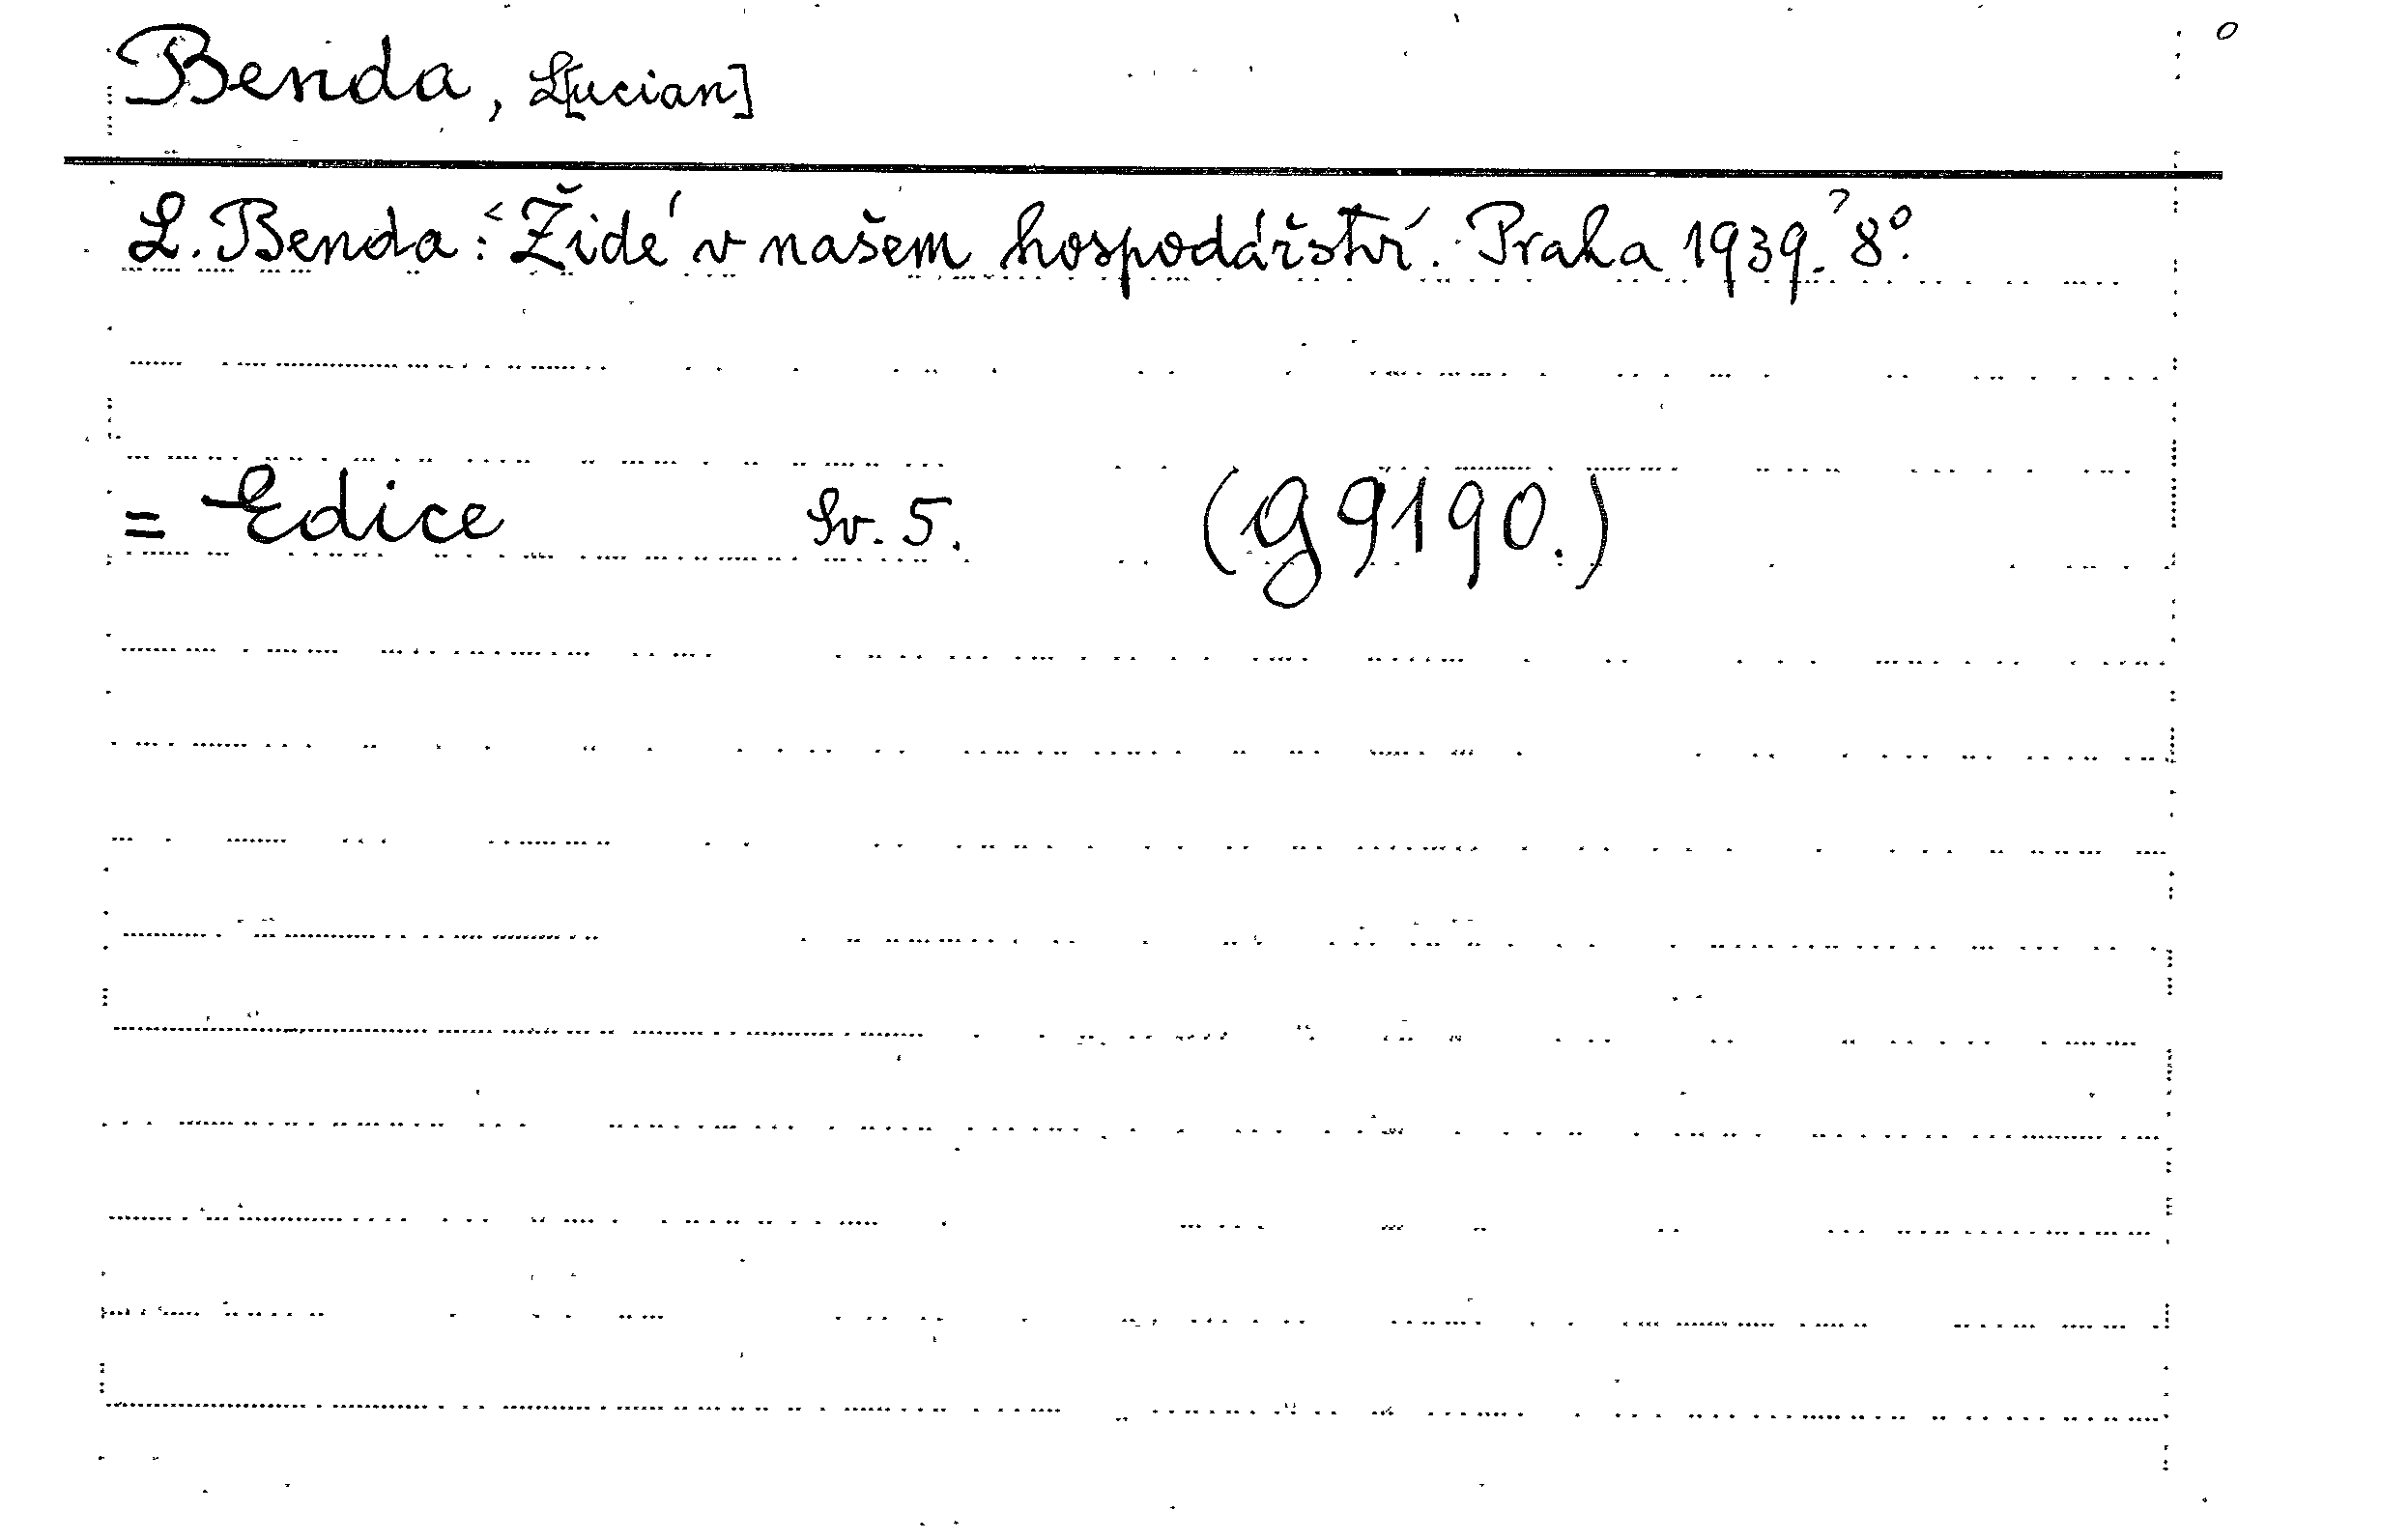 Benda, L[ucian]
L. Benda: Židé v našem hospodářství. Praha 1939. 8°.
= Edice Sv. 5. (g 9190.)